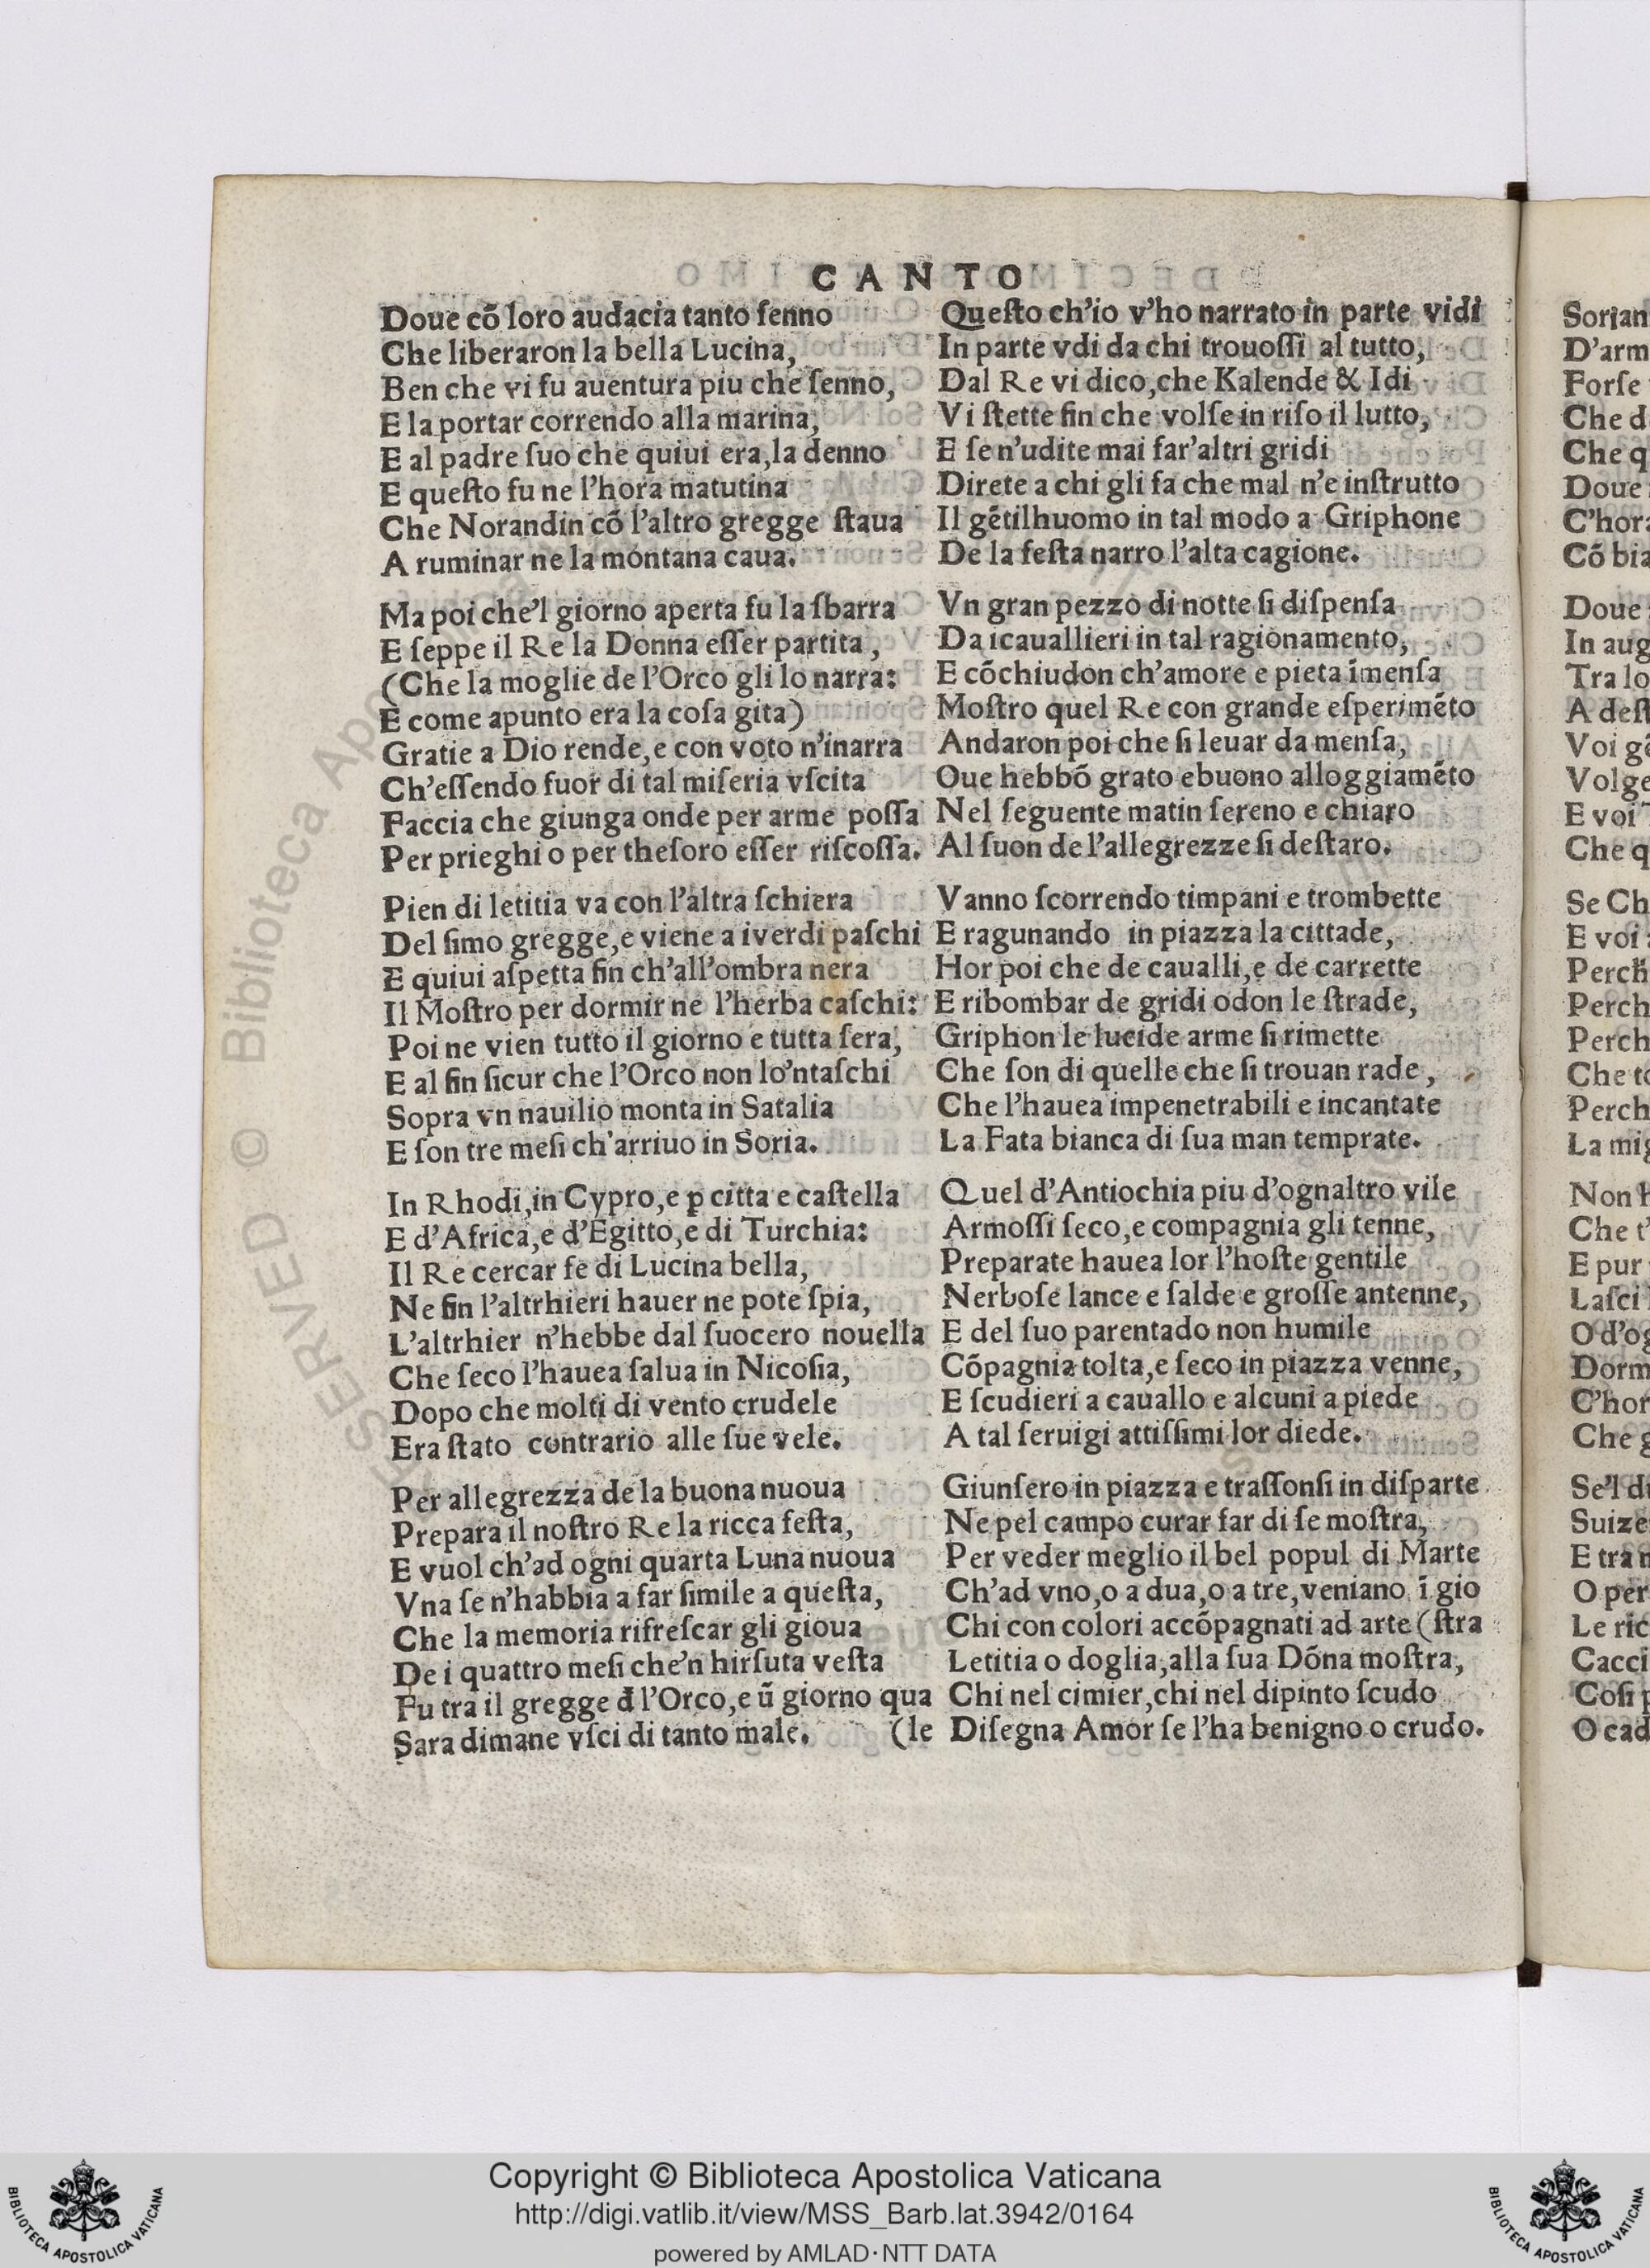 CANTO
Doue cõ loro audacia tanto fenno
Che liberaron la bella Lucina,
Ben che vi fu auentura piu che ſenno,
E la portar correndo alla marina,
E al padre ſuo che quiui era,la denno
E queſto fu ne l'hora matutina
Che Norandin cõ l'altro gregge ſtaua
A ruminar ne la montana caua.
Ma poi che'l giorno aperta fu la ſbarra
E ſeppe il Re la Donna eſſer partita,
(Che la moglie de l'Orco gli lo narra:
E come apunto era la coſa gita)
Gratie a Dio rende,e con voto n'inarra
Ch'eſſendo fuor di tal miſeria vſcita
Faccia che giunga onde per arme poſſa
Per prieghi o per theſoro eſſer riſcoſſa.
Pien di letitia va con l'altra ſchiera
Del ſimo gregge,e viene a iverdi paſchi
E quiui aſpetta fin ch'all'ombra nera
Il Moſtro per dormir ne l'herba caſchi:
Poi ne vien tutto il giorno e tutta ſera,
E al fin ſicur che l'Orco non lo'ntaſchi
Sopra vn nauilio monta in Satalia
E ſon tre meſi ch'arriuo in Soria.
In Rhodi,in Cypro,e ꝑ citta e caſtella
E d'Africa,e d'Egitto,e di Turchia:
Il Re cercar fe di Lucina bella,
Ne fin l'altrhieri hauer ne pote ſpia,
L'altrhier n'hebbe dal ſuocero nouella
Che ſeco l'hauea ſalua in Nicoſia,
Dopo che molti di vento crudele
Era ſtato contrario alle ſue vele.
Per allegrezza de la buona nuoua
Prepara il noſtro Re la ricca feſta,
E vuol ch'ad ogni quarta Luna nuoua
Vna ſe n'habbia a far ſimile a queſta,
Che la memoria rifreſcar gli gioua
De i quattro meſi che'n hirſuta veſta
Fu tra il gregge đ l'Orco,e ũ giorno qua
Sara dimane vſci di tanto male. (le
Queſto ch'io v'ho narrato in parte vidi
In parte vdi da chi trouoſſi al tutto,
Dal Re vi dico,che Kalende & Idi
Vi ſtette fin che volſe in riſo il lutto,
E ſe n'udite mai far'altri gridi
Direte a chi gli fa che mal n'e inſtrutto
Il gẽtilhuomo in tal modo a Griphone
De la feſta narro l'alta cagione.
Vn gran pezzo di notte ſi diſpenſa
Da icauallieri in tal ragionamento,
E cõchiudon ch'amore e pieta ĩmenſa
Moſtro quel Re con grande eſperimẽto
Andaron poi che ſi leuar da menſa,
Oue hebbõ grato ebuono alloggiamẽto
Nel ſeguente matin ſereno e chiaro
Al ſuon de l'allegrezze ſi deſtaro.
Vanno ſcorrendo timpani e trombette
E ragunando in piazza la cittade,
Hor poi che de caualli,e de carrette
E ribombar de gridi odon le ſtrade,
Griphon le lucide arme ſi rimette
Che ſon di quelle che ſi trouan rade,
Che l'hauea impenetrabili e incantate
La Fata bianca di ſua man temprate.
Quel d'Antiochia piu d'ognaltro vile
Armoſſi ſeco,e compagnia gli tenne,
Preparate hauea lor l'hoſte gentile
Nerboſe lance e ſalde e groſſe antenne,
E del ſuo parentado non humile
Cõpagnia tolta,e ſeco in piazza venne,
E ſcudieri a cauallo e alcuni a piede
A tal ſeruigi attiſſimi lor diede.
Giunſero in piazza e traſſonſi in diſparte
Ne pel campo curar far di ſe moſtra,
Per veder meglio il bel popul di Marte
Ch'ad vno,o a dua,o a tre,veniano ĩ gio
Chi con colori accõpagnati ad arte (ſtra
Letitia o doglia,alla ſua Dõna moſtra,
Chi nel cimier,chi nel dipinto ſcudo
Diſegna Amor ſe l'ha benigno o crudo.
Sorian
D'arm
Forſe
Che d
Che q
Doue
C'hora
Cõ bia
Doue
In aug
Tra lo
A deſt
Voi gẽ
Volge
E voi
Che q
Se Ch
E voi
Perch
Perch
Perch
Che to
Perch
La mig
Non h
Che t'
E pur
Laſci
O d'og
Dorm
C'hor
Che g
Se'l d
Suize
E tra
O per
Le ric
Cacci
Coſi p
O cad
© Biblioteca Apo
Copyright © Biblioteca Apostolica Vaticana
http://digi.vatlib.it/view/MSS_Barb.lat.3942/0164
powered by AMLAD·NTT DATA
BIBLIOTECA APOSTOLICA VATICANA
BIBLIOTECA APOSTOLICA VATICANA